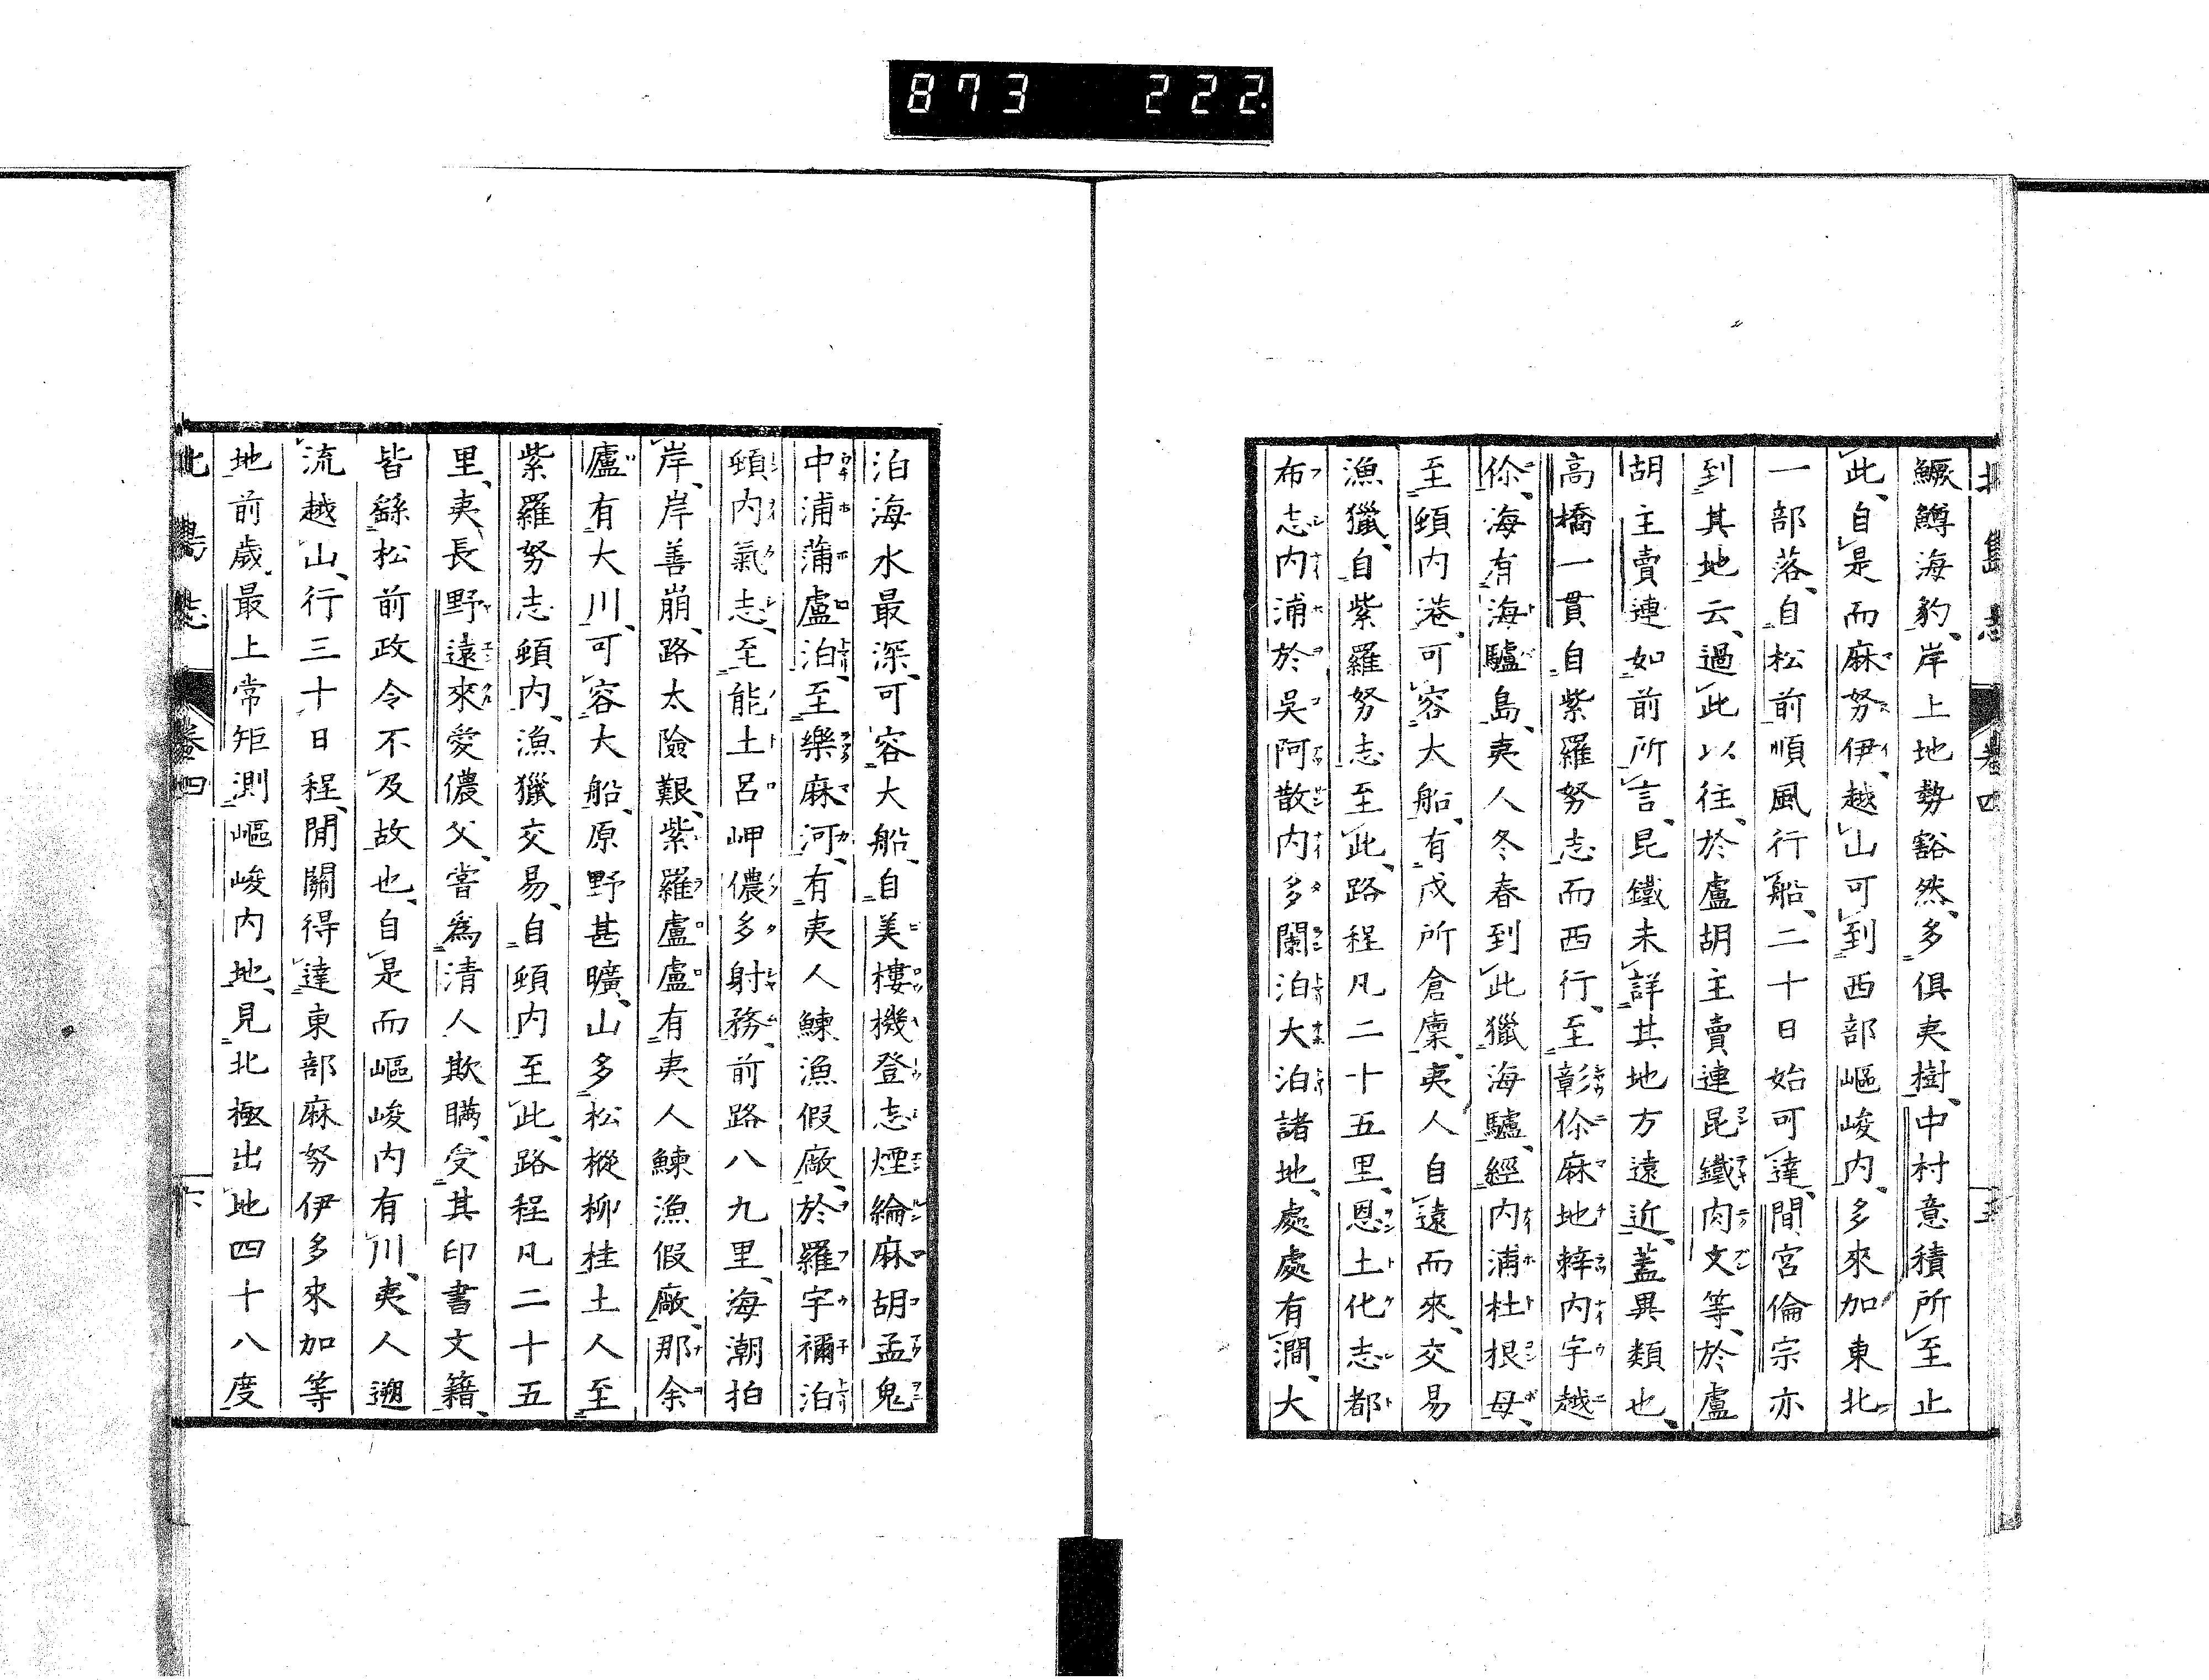 873 222
北島志 卷四 五
鱖鱒海豹、岸上地勢豁然、多俱夷樹、中村意積所至止
此、自是而麻努伊、越山可到西部嶇峻内、多來加東北
一部落、自松前順風行船、二十日始可達、間宮倫宗亦
到其地云、過此以往、於盧胡主賣連昆鐵肉文等、於盧
胡主賣連如前所言、昆鐵未詳其地方遠近、蓋異類也、
高橋一貫自紫羅努志而西行、至彰㑱麻地辢内宇越
㑱、海有海驢島、夷人冬春到此獵海驢、經内浦杜根母、
至頓内港、可容大船、有戍所倉廩、夷人自遠而來、交易
漁獵、自紫羅努志至此、路程凡二十五里、恩土化志都
布志内浦於吳阿散内多闌泊大泊諸地、處處有澗、大
泊海水最深、可容大船、自美樓機登志煙綸麻胡孟鬼
中浦蒲盧泊、至樂麻河、有夷人鰊漁假廠、於羅宇禰泊
頓内氣志、至能土呂岬儂多射務、前路八九里、海潮拍
岸、岸善崩、路太險艱、紫羅盧盧有夷人鰊漁假廠、那余
廬有大川、可容大船、原野甚曠、山多松樅柳桂土人至
紫羅努志頓内、漁獵交易、自頓内至此、路程凡二十五
里、夷長野遠來愛儂父、嘗爲清人欺瞞、受其印書文籍、
皆繇松前政令不及故也、自是而嶇峻内有川、夷人遡
流越山、行三十日程、間關得達東部麻努伊多來加等
地前歳、最上常矩測嶇峻内地、見北極出地四十八度
北島志 卷四 六